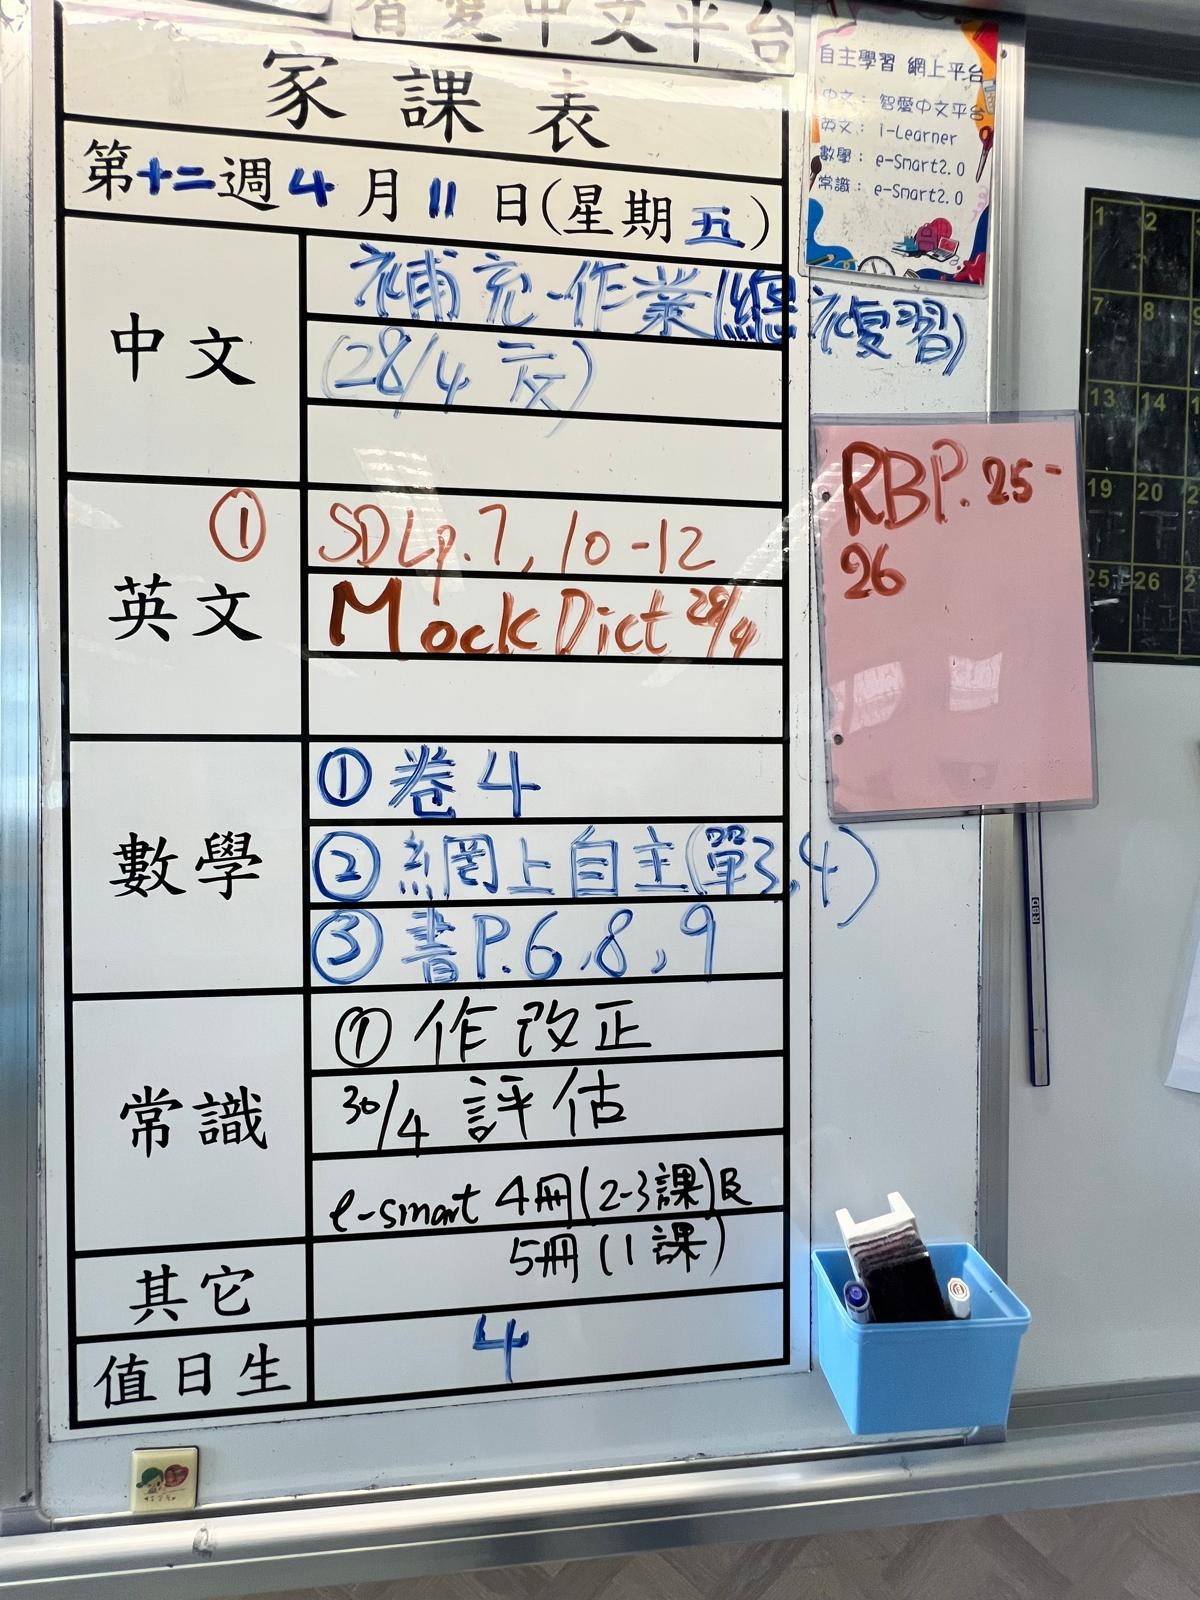 智愛中文平台
家課表
第十二週4月11日(星期五)
中文
補充作業(總複習)
(28/4交)
英文
① SDLp.7, 10-12
Mock Dict 28/4
數學
① 卷4
② 網上自主(單3,4)
③ 書P.6,8,9
常識
① 作改正
30/4 評估
e-smart 4冊(2-3課)及
5冊(1課)
其它
值日生
4
自主學習 網上平台
中文: 智愛中文平台
英文: i-Learner
數學: e-Smart2.0
常識: e-Smart2.0
RBP. 25-
26
1 2
7 8
13 14
19 20
25 26